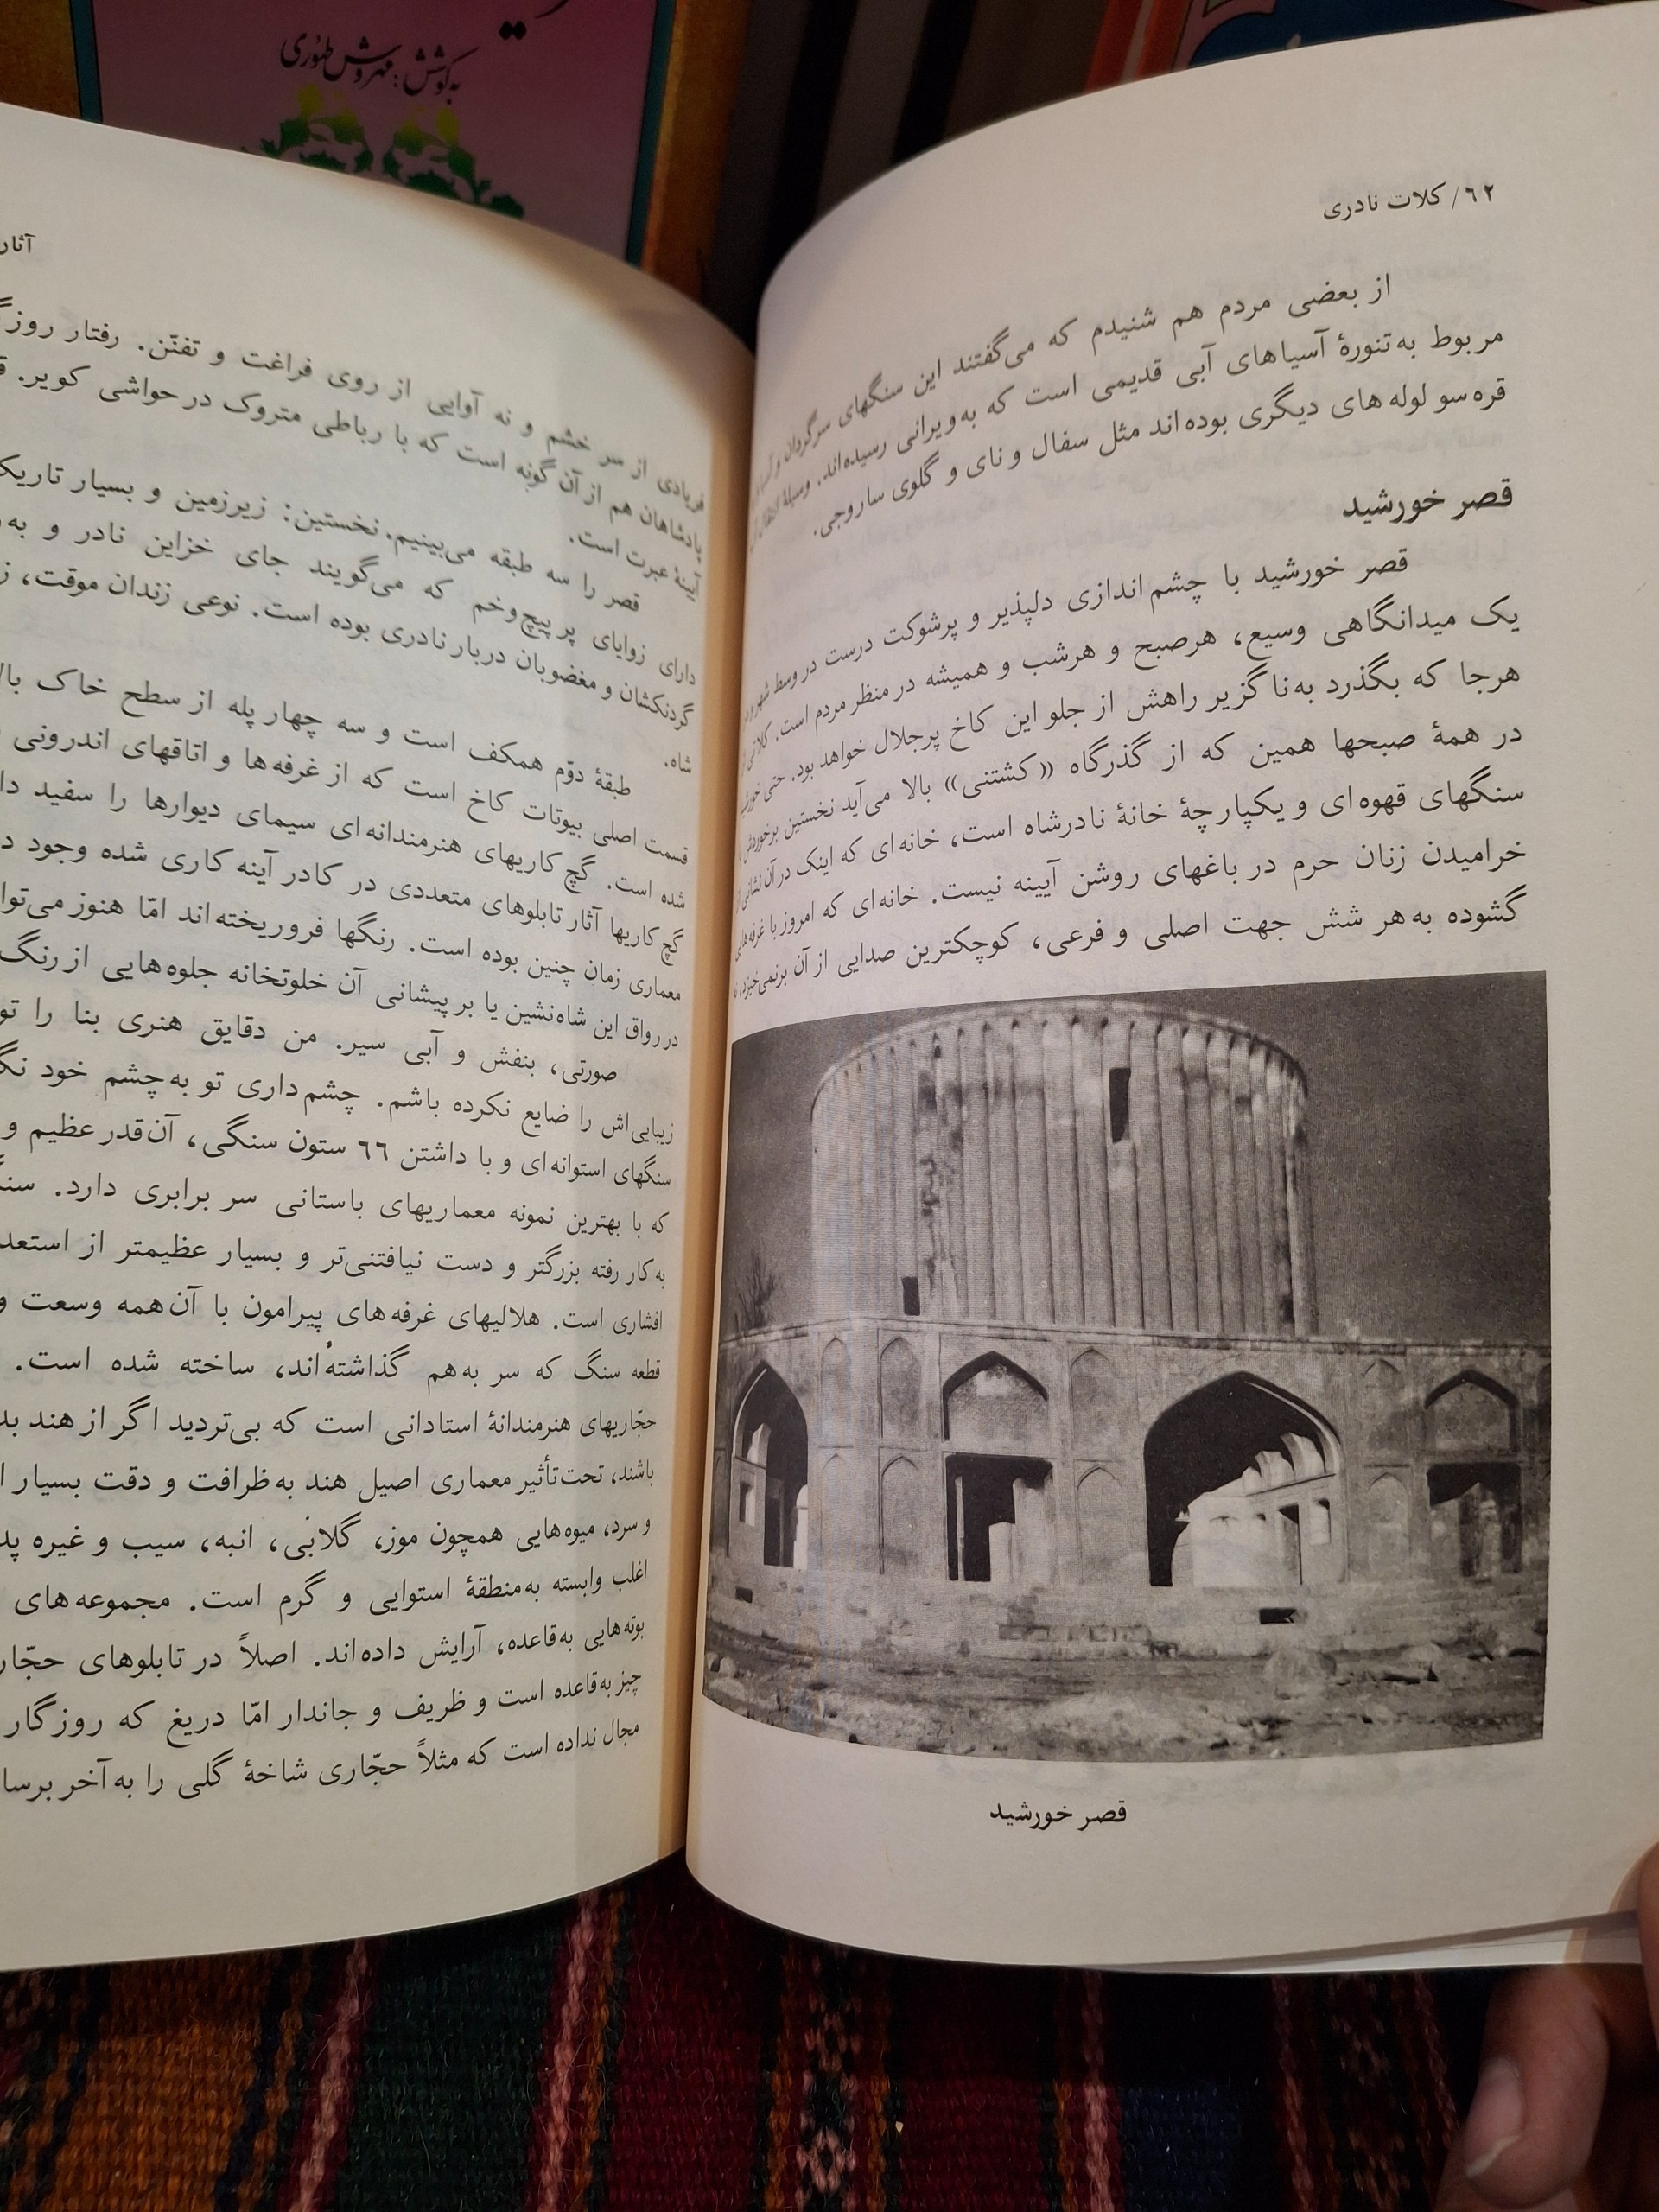 به کوشش: مهروش طهوری
٦٢/ کلات نادری
از بعضی مردم هم شنیدم که می‌گفتند این سنگهای سرگردان و
مربوط به تنورهٔ آسیاهای آبی قدیمی است که به ویرانی رسیده‌اند. وسیلهٔ انتقال
قره‌سو لوله‌های دیگری بوده‌اند مثل سفال و نای و گلوی ساروجی.
قصر خورشید
قصر خورشید با چشم‌اندازی دلپذیر و پرشوکت درست در وسط شهر و
یک میدانگاهی وسیع، هرصبح و هرشب و همیشه در منظر مردم است. کلاتی
هرجا که بگذرد به‌ناگزیر راهش از جلو این کاخ پرجلال خواهد بود. حتی
در همهٔ صبحها همین که از گذرگاه «کشتنی» بالا می‌آید نخستین برخوردش
سنگهای قهوه‌ای و یکپارچهٔ خانهٔ نادرشاه است، خانه‌ای که اینک در آن نشانی از
خرامیدن زنان حرم در باغهای روشن آیینه نیست. خانه‌ای که امروز با غرفه‌هایی
گشوده به هر شش جهت اصلی و فرعی، کوچکترین صدایی از آن برنمی‌خیزد، نه
قصر خورشید
آثار
فریادی از سر خشم و نه آوایی از روی فراغت و تفنّن. رفتار
پادشاهان هم از آن گونه است که با رباطی متروک در حواشی کویر.
آیینهٔ عبرت است.
قصر را سه طبقه می‌بینیم. نخستین: زیرزمین و بسیار تاریک
دارای زوایای پر پیچ‌وخم که می‌گویند جای خزاین نادر و
گردنکشان و مغضوبان دربار نادری بوده است. نوعی زندان موقت،
شاه.
طبقهٔ دوّم همکف است و سه چهار پله از سطح خاک
قسمت اصلی بیوتات کاخ است که از غرفه‌ها و اتاقهای اندرونی
شده است. گچ‌کاریهای هنرمندانه‌ای سیمای دیوارها را سفید
گچ‌کاریها آثار تابلوهای متعددی در کادر آینه کاری شده وجود
معماری زمان چنین بوده است. رنگها فروریخته‌اند امّا هنوز
در رواق این شاه‌نشین یا بر پیشانی آن خلوتخانه جلوه‌هایی از رنگ
صورتی، بنفش و آبی سیر. من دقایق هنری بنا را
زیبایی‌اش را ضایع نکرده باشم. چشم داری تو به‌چشم خود
سنگهای استوانه‌ای و با داشتن ٦٦ ستون سنگی، آن‌قدر عظیم و
که با بهترین نمونه معماریهای باستانی سر برابری دارد.
به کار رفته بزرگتر و دست نیافتنی‌تر و بسیار عظیمتر از
افشاری است. هلالیهای غرفه‌های پیرامون با آن‌همه وسعت و
قطعه سنگ که سر به‌هم گذاشته‌اند، ساخته شده است.
حجّاریهای هنرمندانهٔ استادانی است که بی‌تردید اگر از هند
باشند، تحت‌تأثیر معماری اصیل هند به‌ظرافت و دقت بسیار
و سرد، میوه‌هایی همچون موز، گلابی، انبه، سیب و غیره
اغلب وابسته به‌منطقهٔ استوایی و گرم است. مجموعه‌های
بوته‌هایی به‌قاعده، آرایش داده‌اند. اصلاً در تابلوهای
چیز به‌قاعده است و ظریف و جاندار امّا دریغ که روزگار
مجال نداده است که مثلاً حجّاری شاخهٔ گلی را به آخر